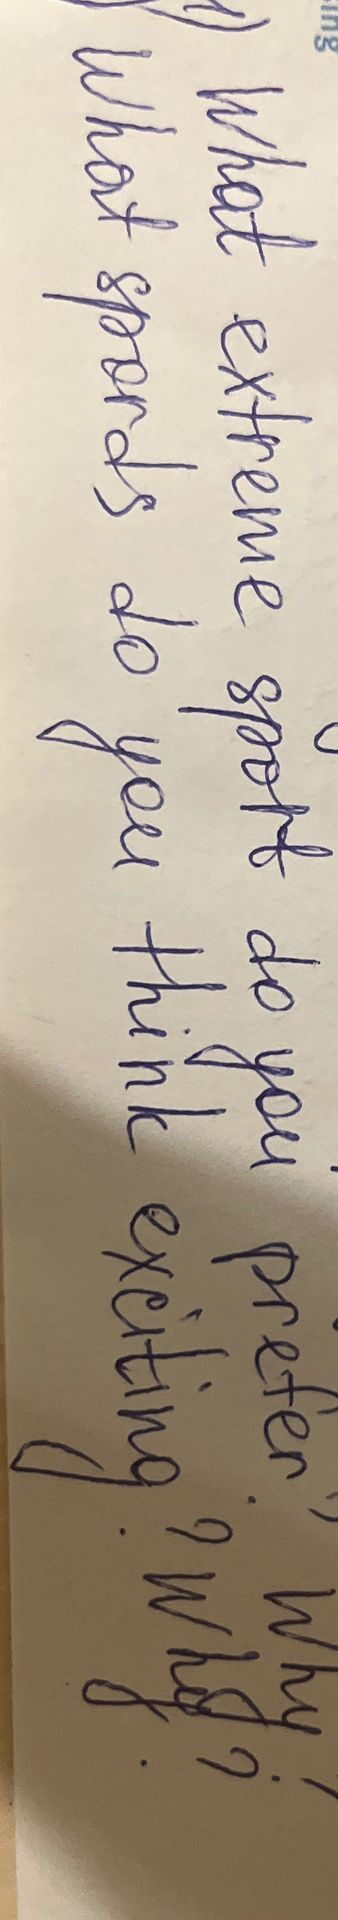 1) What extreme sport do you prefer? Why?
What spords do you think exciting? Why?